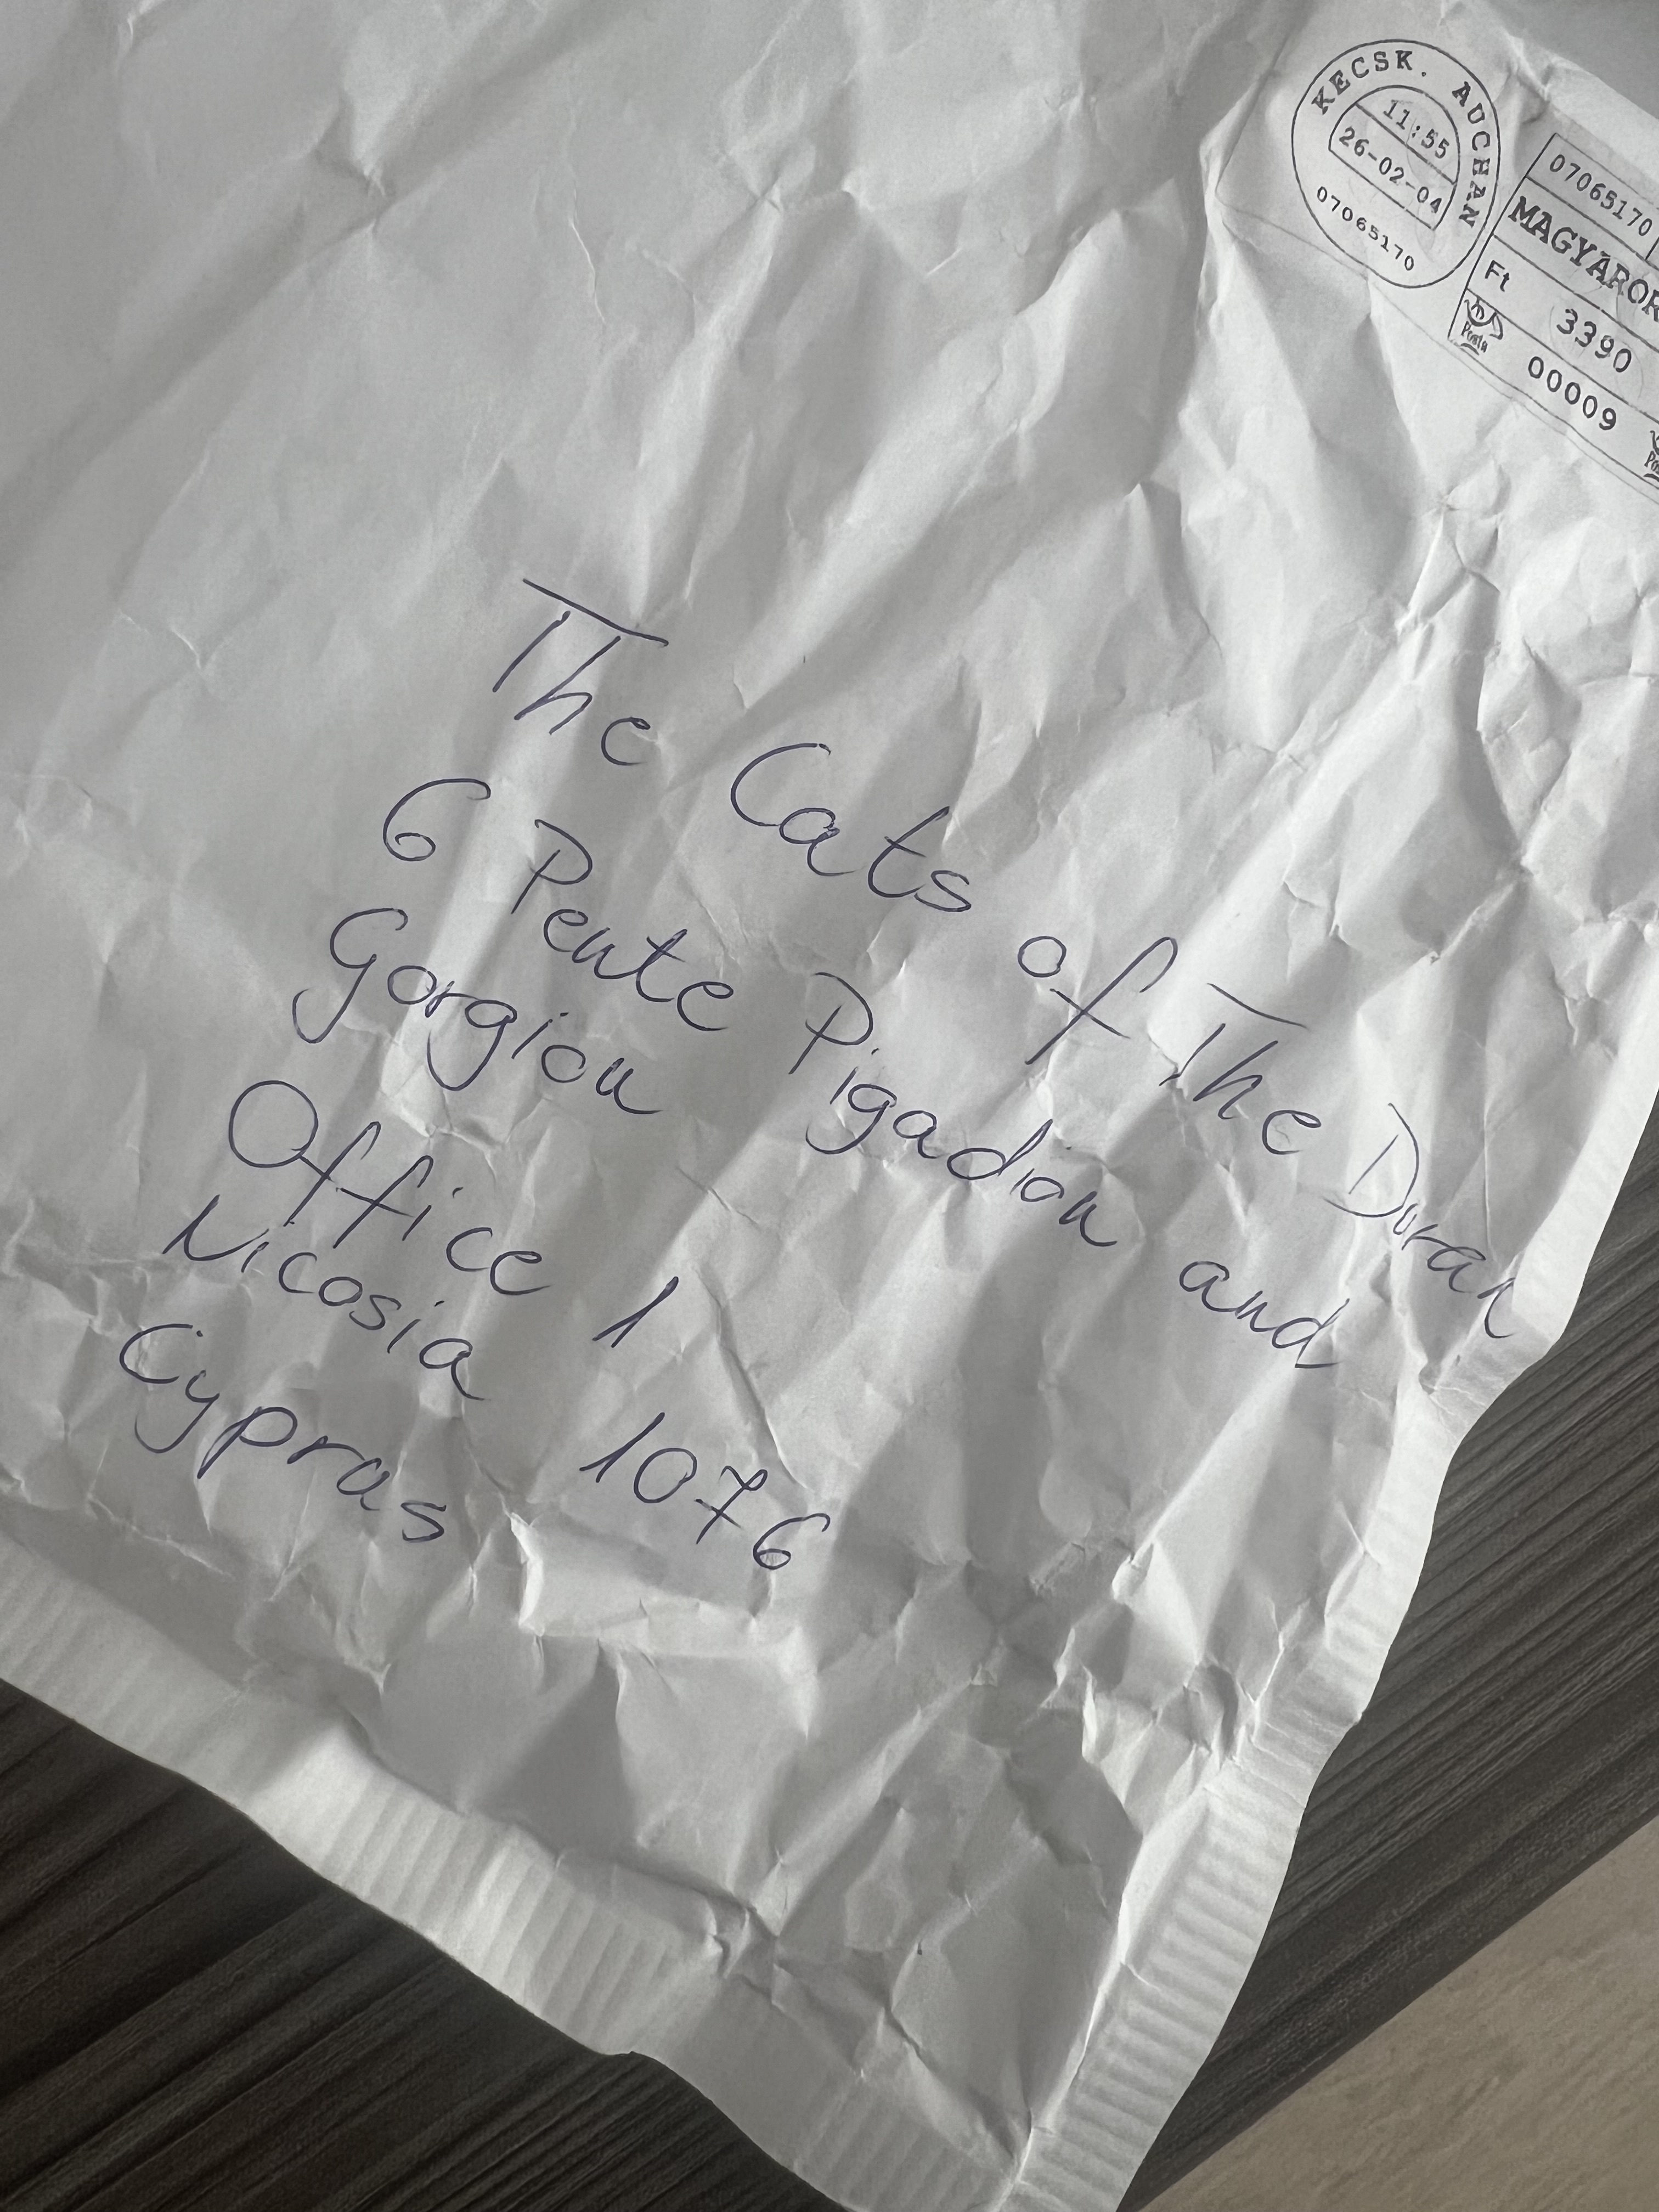 KECSK. AUCHAN
11:55
26-02-04
07065170
07065170
MAGYAROR
Ft 3390
Posta 00009
The Cats of The Duran
6 Pente Pigadion and
Gorgiou
Office 1
Nicosia 1076
Cyprus